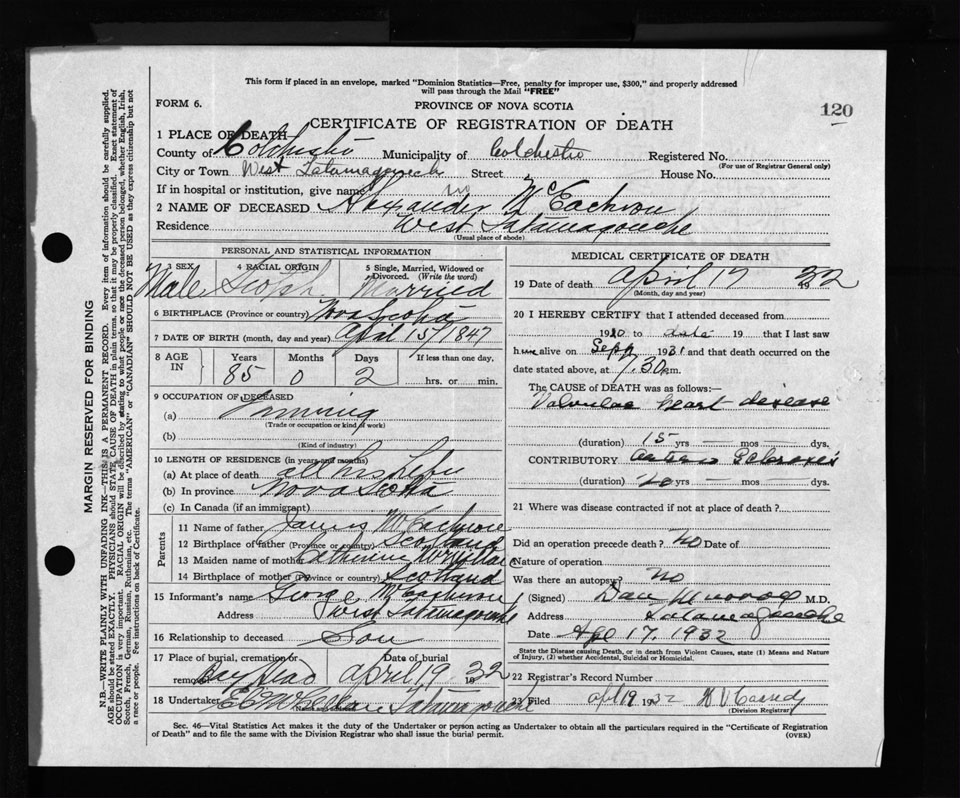 This form if placed in an envelope, marked "Dominion Statistics—Free, penalty for improper use, $300," and properly addressed
will pass through the Mail "FREE"
FORM 6.
PROVINCE OF NOVA SCOTIA
120
CERTIFICATE OF REGISTRATION OF DEATH
1 PLACE OF DEATH
County of Colchester Municipality of Colchester Registered No.
(For use of Registrar General only)
City or Town West Tatamagouche Street House No.
If in hospital or institution, give name no
2 NAME OF DECEASED Alexander McEachron
Residence West Tatamagouche
(Usual place of abode)
PERSONAL AND STATISTICAL INFORMATION
3 SEX Male
4 RACIAL ORIGIN Scotch
5 Single, Married, Widowed or Divorced. (Write the word) Married
6 BIRTHPLACE (Province or country) Nova Scotia
7 DATE OF BIRTH (month, day and year) April 15/1847
8 AGE IN Years 85 Months 0 Days 2 If less than one day, hrs. or min.
9 OCCUPATION OF DECEASED
(a)
(Trade or occupation or kind of work)
(b)
(Kind of industry)
10 LENGTH OF RESIDENCE (in years and months)
(a) At place of death all his Life
(b) In province Nova Scotia
(c) In Canada (if an immigrant)
Parents
11 Name of father James McEachron
12 Birthplace of father (Province or country) Scotland
13 Maiden name of mother
14 Birthplace of mother (Province or country) Scotland
15 Informant's name George McEachron
Address West Tatamagouche
16 Relationship to deceased Son
17 Place of burial, cremation or removal Date of burial April 19 1932
18 Undertaker Tatamagouche
MEDICAL CERTIFICATE OF DEATH
19 Date of death April 17 1932
(Month, day and year)
20 I HEREBY CERTIFY that I attended deceased from
1910 to date 19 that I last saw
h im alive on Sept 1931 and that death occurred on the
date stated above, at 7.30 m.
The CAUSE OF DEATH was as follows:—
Valvular heart disease
(duration) 15 yrs — mos — dys.
CONTRIBUTORY Arterio Sclerosis
(duration) 20 yrs — mos — dys.
21 Where was disease contracted if not at place of death?
Did an operation precede death? No Date of
Nature of operation
Was there an autopsy? no
(Signed) Dan Murray M.D.
Address Tatamagouche
Date Apl 17, 1932
State the Disease causing Death, or in death from Violent Causes, state (1) Means and Nature
of Injury, (2) whether Accidental, Suicidal or Homicidal.
22 Registrar's Record Number
23 Filed Apl 19 1932
(Division Registrar)
Sec. 46—Vital Statistics Act makes it the duty of the Undertaker or person acting as Undertaker to obtain all the particulars required in the "Certificate of Registration
of Death" and to file the same with the Division Registrar who shall issue the burial permit.
(OVER)
MARGIN RESERVED FOR BINDING
N.B.—WRITE PLAINLY, WITH UNFADING INK—THIS IS A PERMANENT RECORD. Every item of information should be carefully supplied.
AGE should be stated EXACTLY. PHYSICIANS should STATE CAUSE OF DEATH in plain terms, so that it may be properly classified. Exact statement of
OCCUPATION is very important. RACIAL ORIGIN will be described by stating to what people or race the deceased person belonged, whether English, Irish,
Scotch, French, German, Russian, Ruthenian, etc. The terms "AMERICAN" or "CANADIAN" SHOULD NOT BE USED as they express citizenship but not
a race or people. See instructions on back of Certificate.